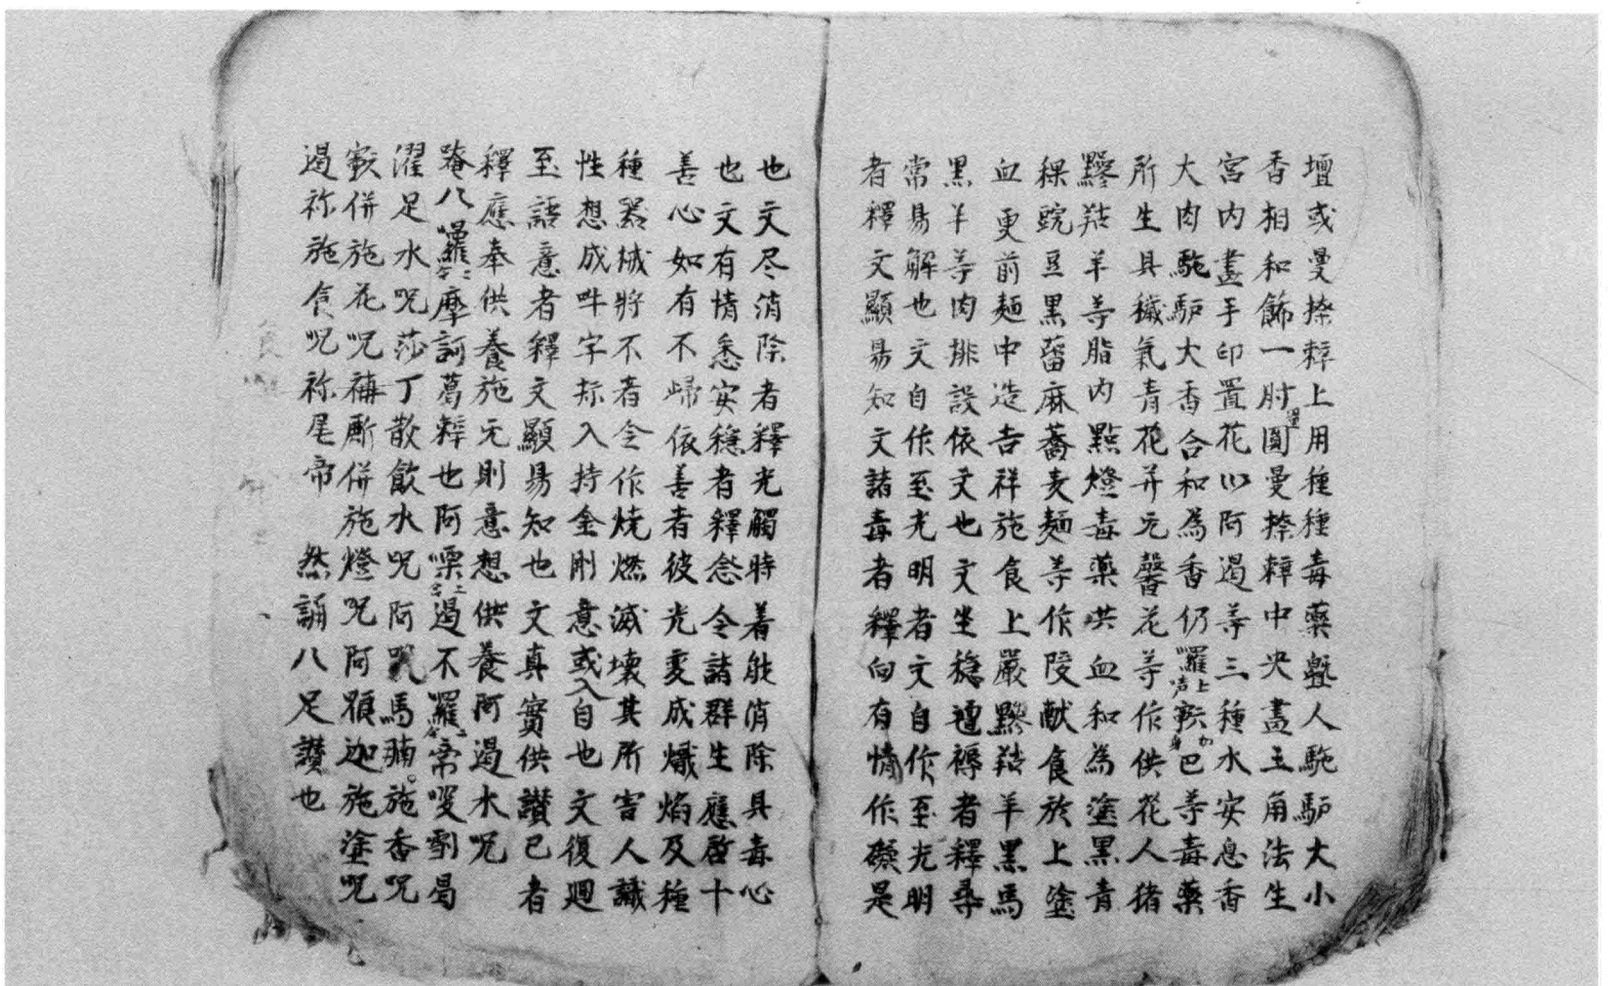 壇或曼捺辢上用種種毒藥塹人駞馿大小
香相和飾一肘圓曼捺辢中央畫玉角法生
宮内畫手印置花以阿遏等三種水安息香
大肉駞馿大香合和為香仍囉上声輆身巴等毒藥
所生具穢氣青花并元馨花等作供花人猪
黲羖羊等脂内點燈毒藥洪血和為塗黑青
稞豌豆黑蓞麻蕎麦麺等作陖献食於上塗
血更前麺中造吉祥施食上嚴黲羖羊黑馬
黑羊等肉排設依文也文坐穏氊褥者釋尋
常易解也文自作至光明者文自作至光明
者釋文顯易知文諸毒者釋向有情作礙是
也文尽消除者釋光觸時着能消除具毒心
也文有情悉安穏者釋念令諸群生應啓十
善心如有不歸依善者彼光変成熾焰及種
種器械將不者令作燒燃滅壞其所害人識
性想成吽字标入持金剛意或入自也文復廻
至語意者釋文顯易知也文真實供讃已者
釋應奉供養施元則意想供養阿遏水呪
唵八囉二合摩訶葛辢也阿㗚二合遏不囉二合帝㗚割曷
濯足水呪莎丁散飲水呪阿呪馬腩施香呪
輆併施花呪補厮併施燈呪阿濔迦施塗呪
遏祢施食呪祢尾帝 然誦八足讃也